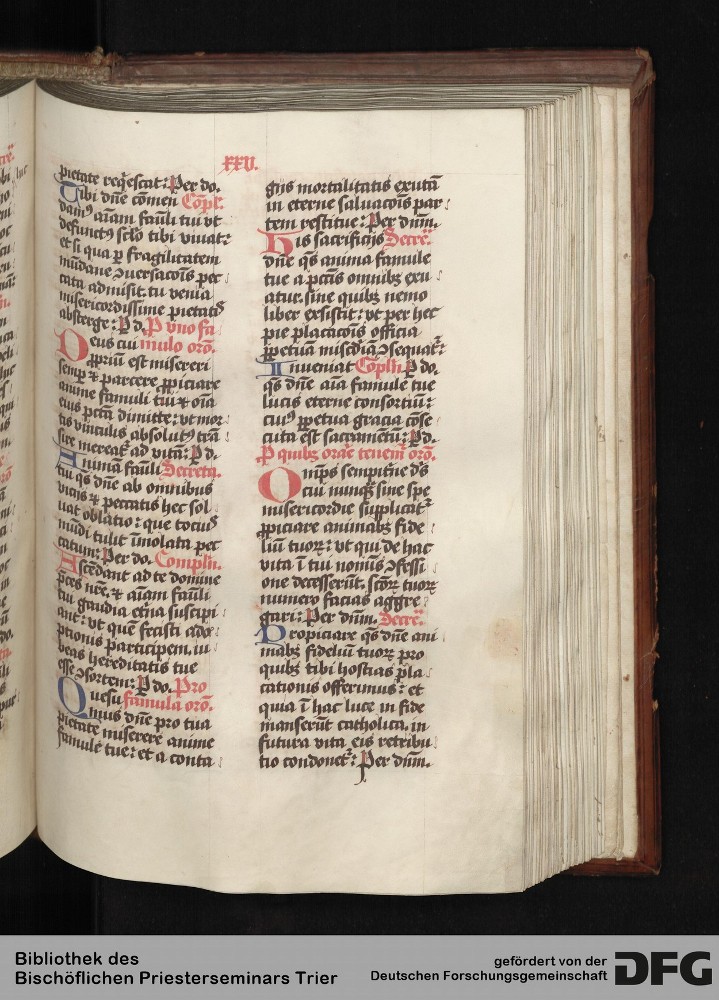 xxv.
pietate reqͥescat: Per do.
Tibi dn̄e com̄en Cōpl'.
dam⁹ aīam fam̄li tui vt
defunct⁹ sclō tibi viuat:
et si qua p̲ fragilitatem
mūdane ꝯuersacōis per
cata admisit. tu venia
misericordissime pietatꝭ
absterge: P d. P vno fa
Deus cui mulo orō.
ꝓpriū est misereri
semp̲ ⁊ parcere ꝓpiciare
anime famuli tui ⁊ oīa
eius pctā dimitte: vt mor
tis vinculis absolut⁹ trā
sire mereat᷑ ad vitā: P d.
Animā fam̄li Secreta.
tui q̄s dn̄e ab omnibus
vicijs ⁊ peccatis hec sol
uat oblatio: que tocius
mūdi tulit īmolata pec
catum: Per do. Complēn.
Ascēdant ad te domine
p̄ces nr̄e. ⁊ aīam fam̄li
tui gaudia et̄na suscipi
ant: vt quē fecisti ado
ptionis participem. iu
beas hereditatis tue
esse ꝯsortem: P do. Pro
Quesu famula orō.
mus dn̄e pro tua
pietate miserere anime
famule tue: et a conta
gijs mortalitatis exutā
in eterne saluacōis par
tem restitue: Per dnm̄.
His sacrificijs Secreͭ.
dn̄e q̄s anima famule
tue a pctīs omnibꝫ exu
atur. sine quibꝫ nemo
liber exsistit: vt per hec
pie placacōis officia
ꝑpetuā misc̄diā ꝯsequat᷑:
Inueniat Cōplēn. P do.
q̄s dn̄e aīa famule tue
lucis eterne consortiū:
cui⁹ ꝑpetua gracia cōse
cuta est sacramētū: P d.
P quibꝫ orāe tenem᷑ orō.
Om̄ps sempit̄ne ds̄
cui nunqꝫ sine spe
misericordie supplicat᷑
ꝓpiciare animabꝫ fide
liū tuoꝝ: vt qui de hac
vita ī tui nomīs ꝯfessi
one decesserūt. sctōꝝ tuoꝝ
numero facias aggre
gari: Per dnm̄. Secreͭ.
Propiciare q̄s dn̄e ani
mabꝫ fideliū tuoꝝ pro
quibꝫ tibi hostias pla
cationis offerimus: et
quia ī hac luce in fide
manserūt catholica. in
futura vita eis retribu
tio condonet᷑: Per dnm̄.
Bibliothek des
Bischöflichen Priesterseminars Trier
gefördert von der
Deutschen Forschungsgemeinschaft
DFG